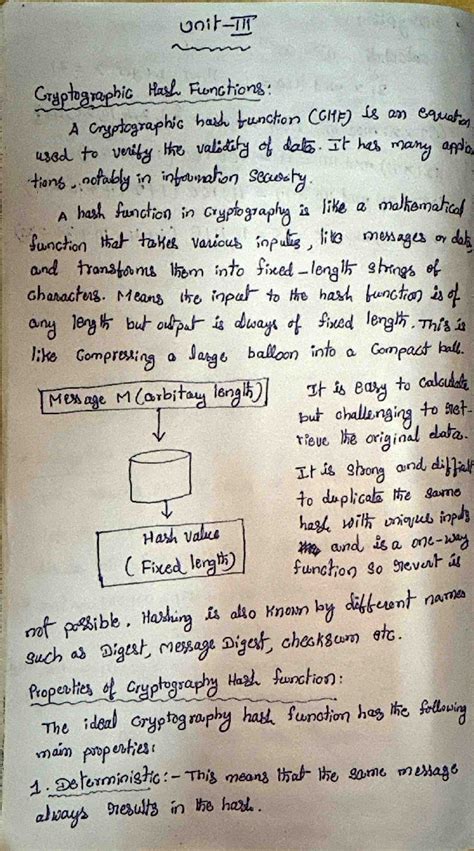 Unit-III
Cryptographic Hash Functions:
A Cryptographic hash function (CHF) is an equation
used to verify the validity of data. It has many applica
tions, notably in information security.
A hash function in cryptography is like a mathematical
function that takes various inputs, like messages or data,
and transforms them into fixed-length strings of
characters. Means the input to the hash function is of
any length but output is always of fixed length. This is
like Compressing a large balloon into a Compact ball.
Message M (arbitary length)
Hash value
(Fixed length)
It is easy to calculate
but challenging to ret-
rieve the original data.
It is strong and difficult
to duplicate the same
hash with unique inputs
and is a one-way
function so revert is
not possible. Hashing is also known by different names
such as Digest, Message Digest, checksum etc.
Properties of Cryptography Hash function:
The ideal cryptography hash function has the following
main properties:
1. Deterministic:- This means that the same message
always results in the hash.